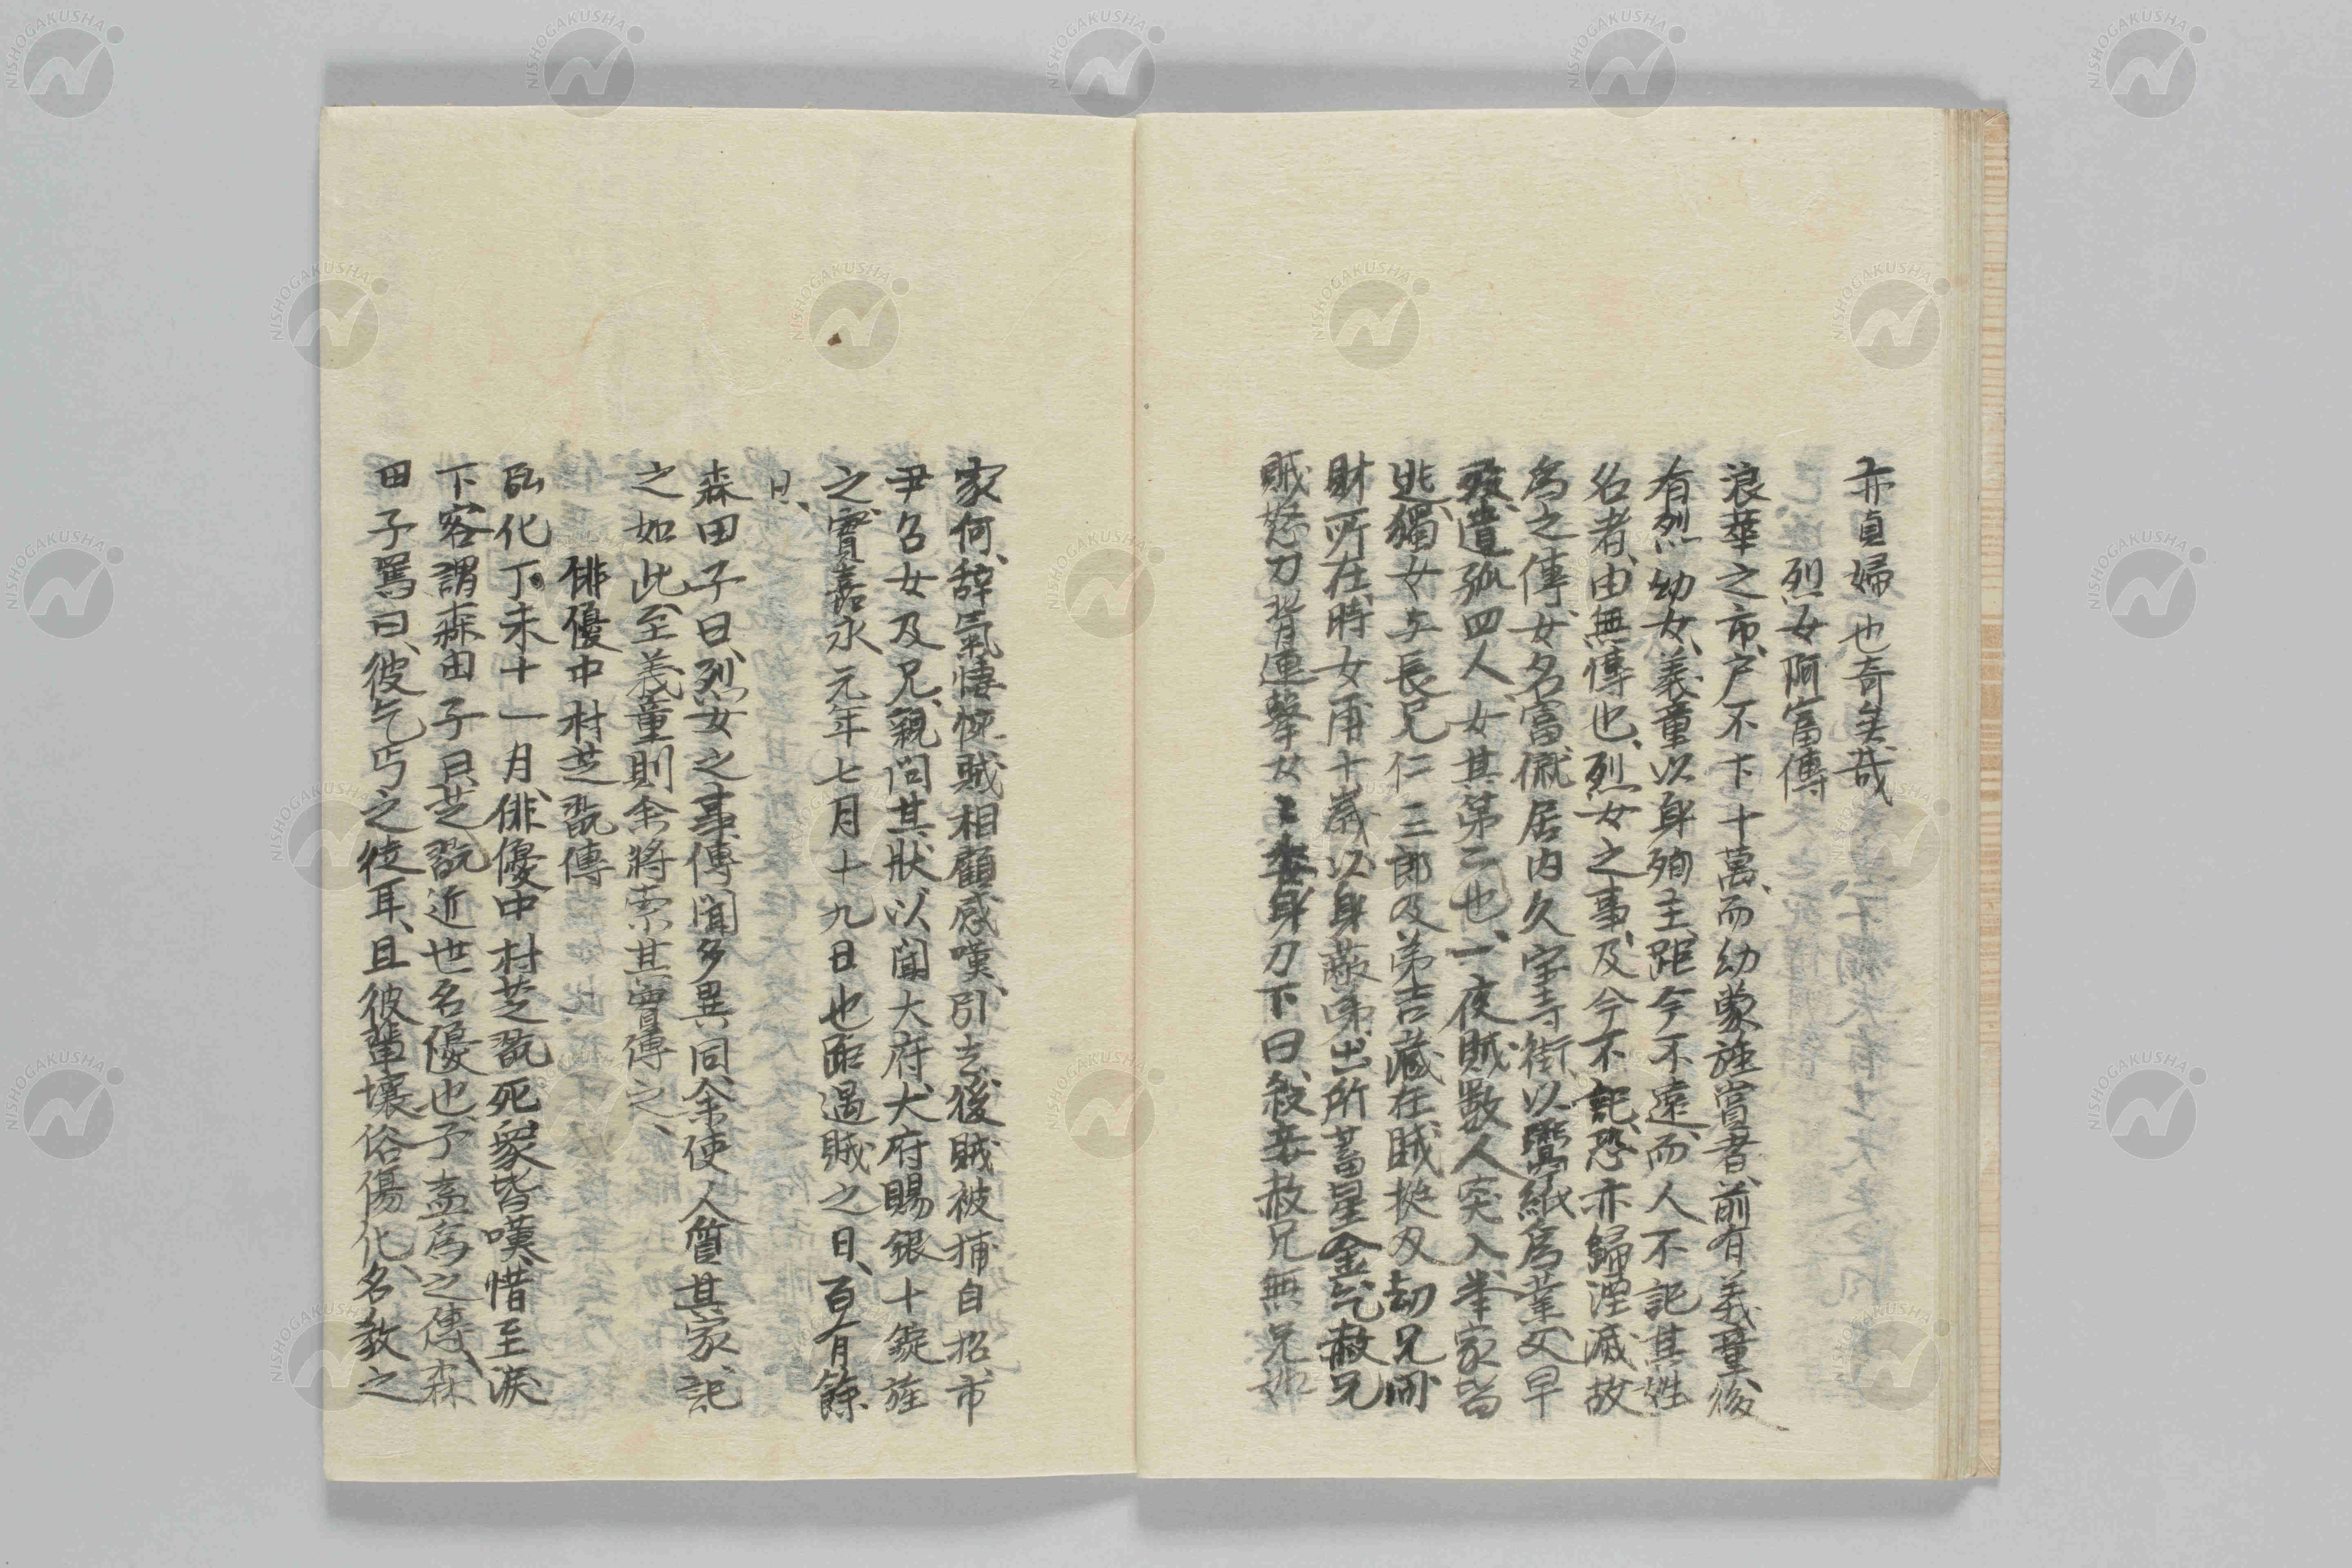 亦貞婦也奇矣哉
烈女阿富傳
浪華之市、戸不下十萬、而幼蒙旌賞者、前有義童、後
有烈幼女、義童以身殉主、距今不遠、而人不記其姓
名者、由無傳也、烈女之事、及今不記、恐亦歸湮滅、故
為之傳、女名富、僦居内久宝寺街、以鬻紙為業、父早
歿、遺孤四人、女其第二也、一夜賊數人突入、挙家皆
逃、獨女与長兄仁三郎及弟吉藏在、賊挺刃劫兄問
財所在、時女甫十歳、以身蔽弟、出所蓄星金乞赦兄
賊怒刀背連撃女〻委身刀下曰、殺妾赦兄無兄如
家何、辞氣悽惋賊相顧感嘆、引去、後賊被捕自招市
尹召女及兄、親問其狀以聞大府、大府賜銀十錠旌
之、實嘉永元年七月十九日也距遇賊之日、百有餘
日、
森田子曰、烈女之事傳聞多異同、余使人質其家、記
之如此、至義童則余將索其實傳之、
俳優中村芝翫傳
弘化丁未十一月、俳優中村芝翫死、衆皆嘆、惜至涙
下、客謂森田子曰、芝翫近世名優也、予盍為之傳、森
田子罵曰、彼乞丐之徒耳、且彼輩壞俗傷化、名教之